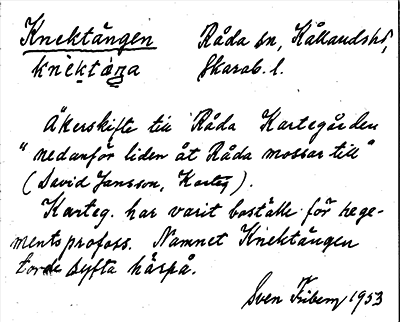 Knektängen Råda sn, Kållandshd,
knèktáṉa Skarab. l.
Åkerskifte till Råda Kartegården
"nedanför liden åt Råda mossar till"
(David Jansson, Karteg).
Karteg. har varit boställe för rege-
mentsprofoss. Namnet Knektängen
torde syfta härpå.
Sven Friberg 1953